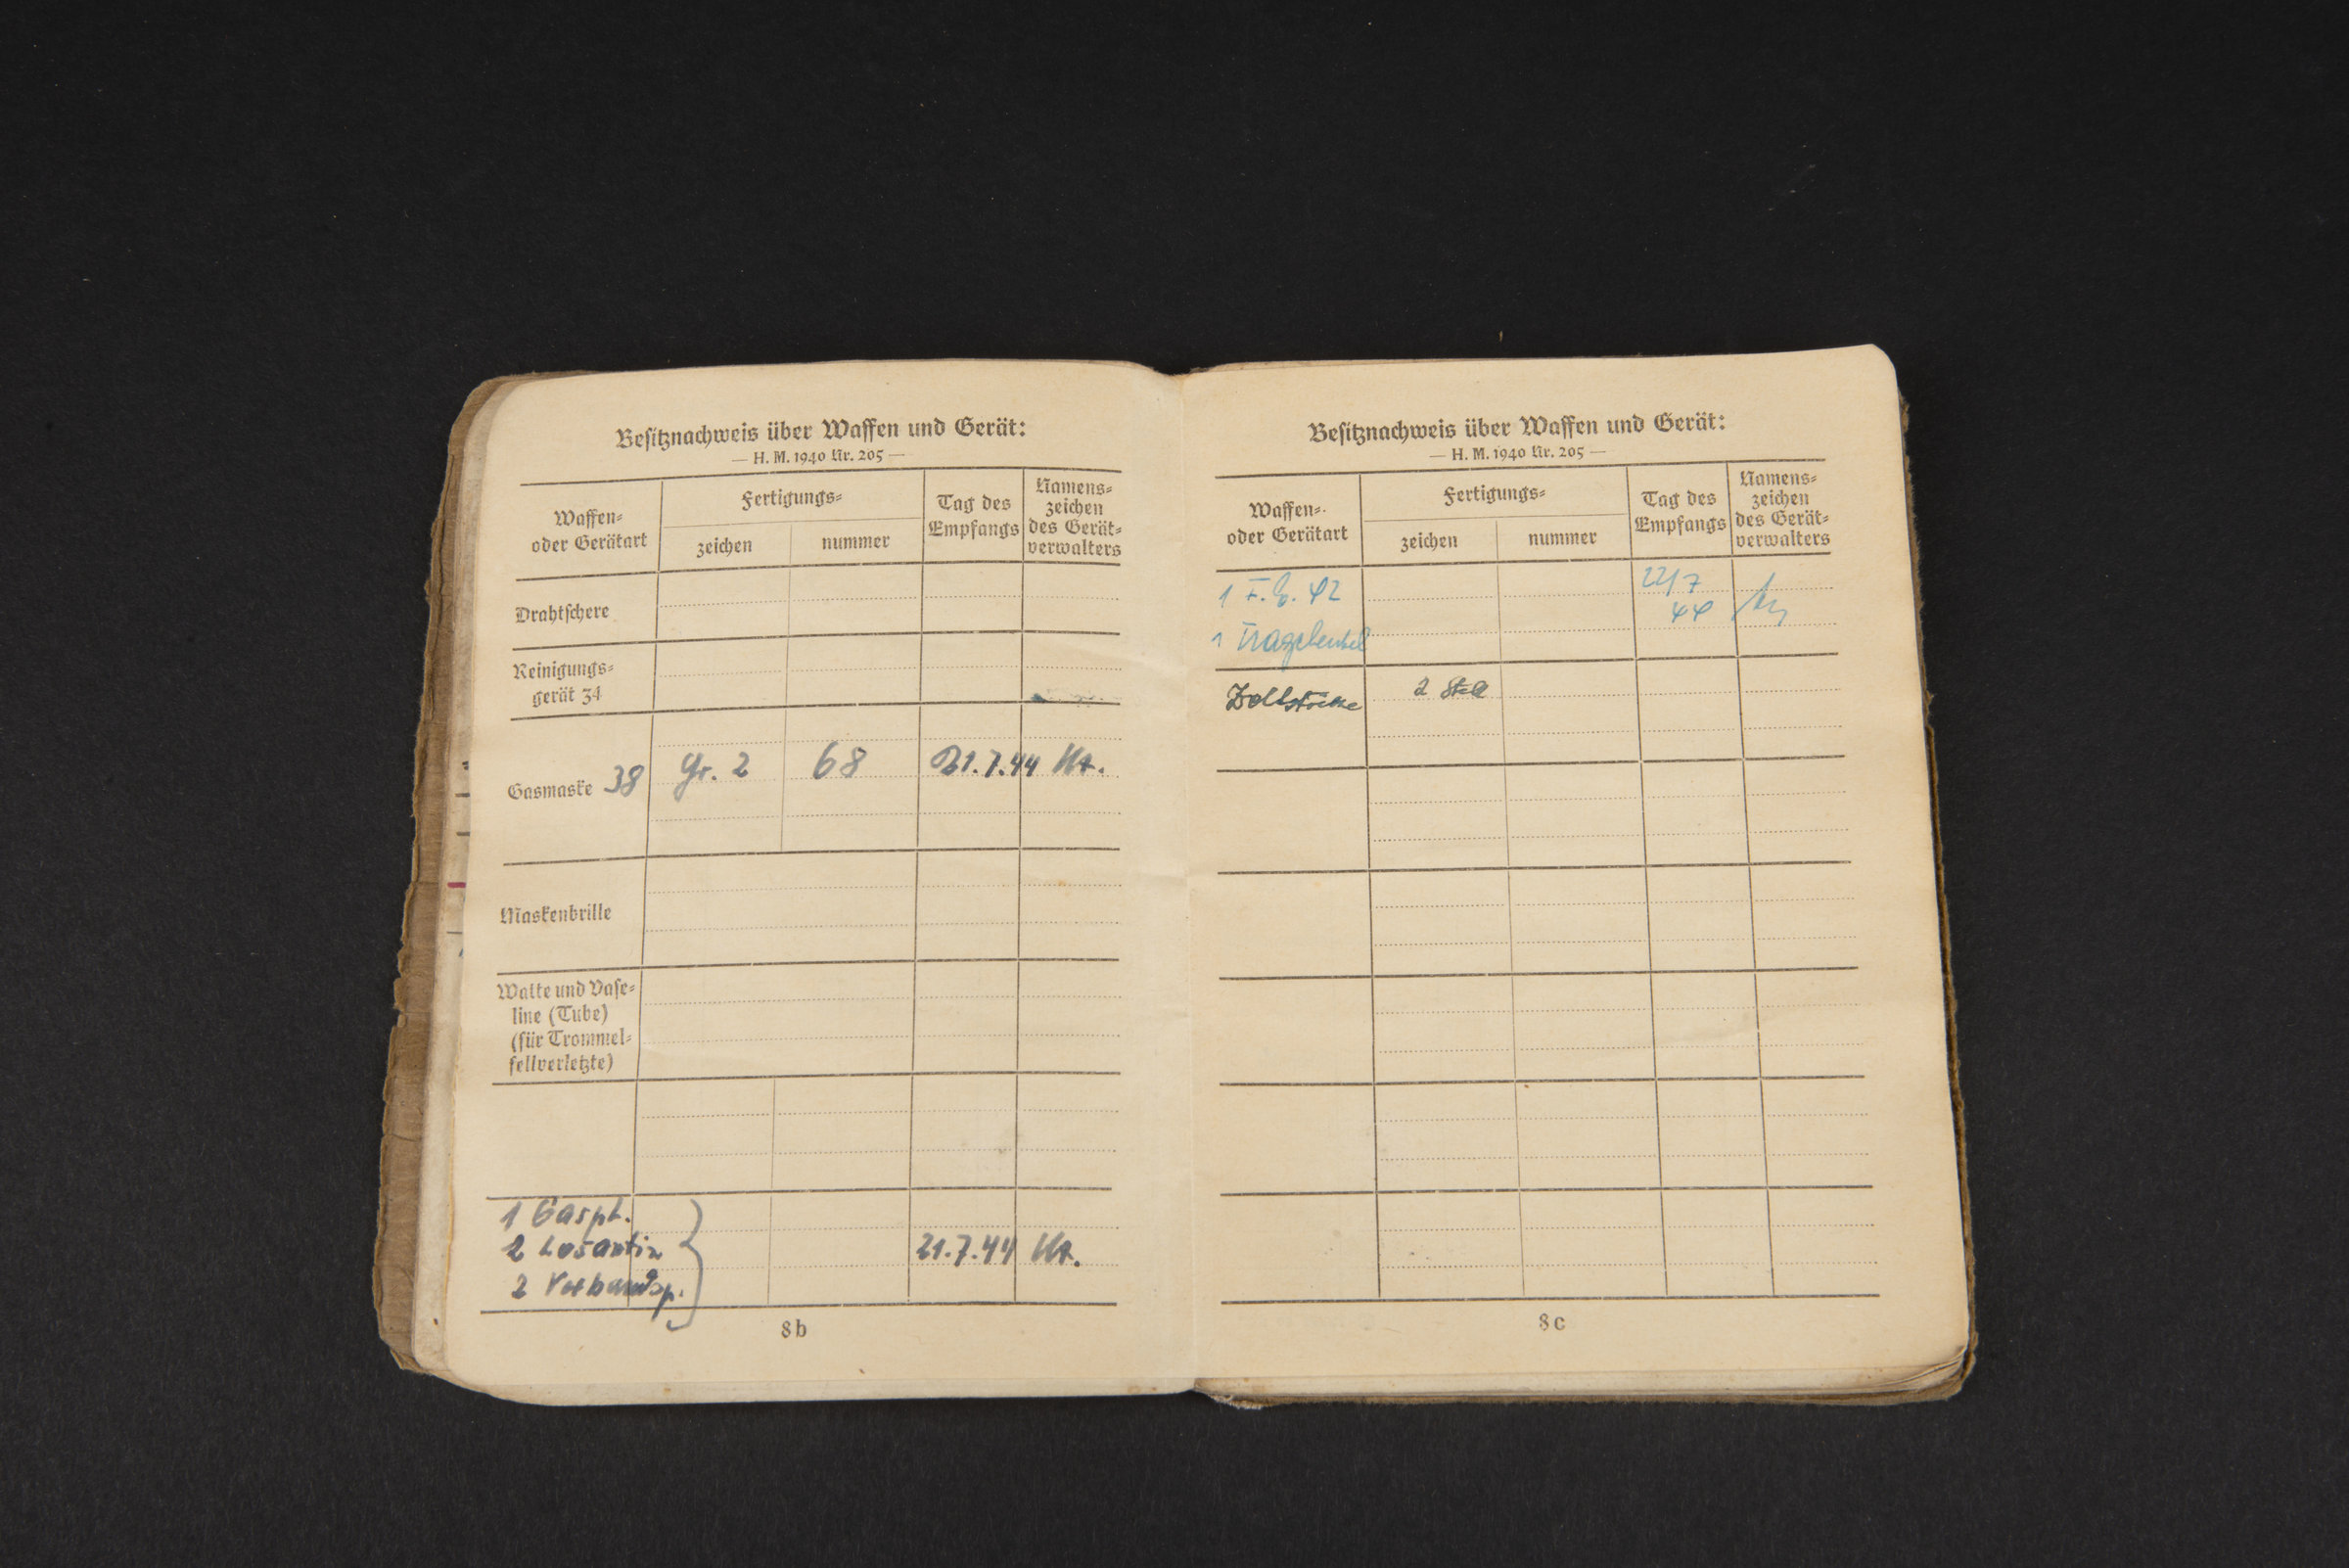 Besitznachweis über Waffen und Gerät:
— H. M. 1940 Nr. 205 —
Waffen-
oder Gerätart
Fertigungs-
zeichen
nummer
Tag des
Empfangs
Namens-
zeichen
des Gerät-
verwalters
Drahtschere
Reinigungs-
gerät 34
Gasmaske 38 Gr. 2 68 21.7.44
Maskenbrille
Watte und Vase-
line (Tube)
(für Trommel-
fellverletzte)
1 Gaspl.
2 Losantin
2 Verbandsp.
21.7.44
8b
Besitznachweis über Waffen und Gerät:
— H. M. 1940 Nr. 205 —
Waffen-
oder Gerätart
Fertigungs-
zeichen
nummer
Tag des
Empfangs
Namens-
zeichen
des Gerät-
verwalters
1 42 22/7
44
1 Tragebeutel
Zollstöcke 2
8c